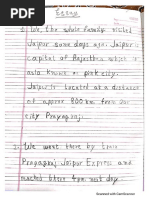 Essay
1) We, the whole family visited
Jaipur some days ago. Jaipur
capital of Rajasthan which is
also known as pink city.
Jaipur is located at a distance
of approx 800 km from our
city Prayagraj.
2) We went there by train
Prayagraj Jaipur Express and
reached there 4 pm next day.
Scanned with CamScanner